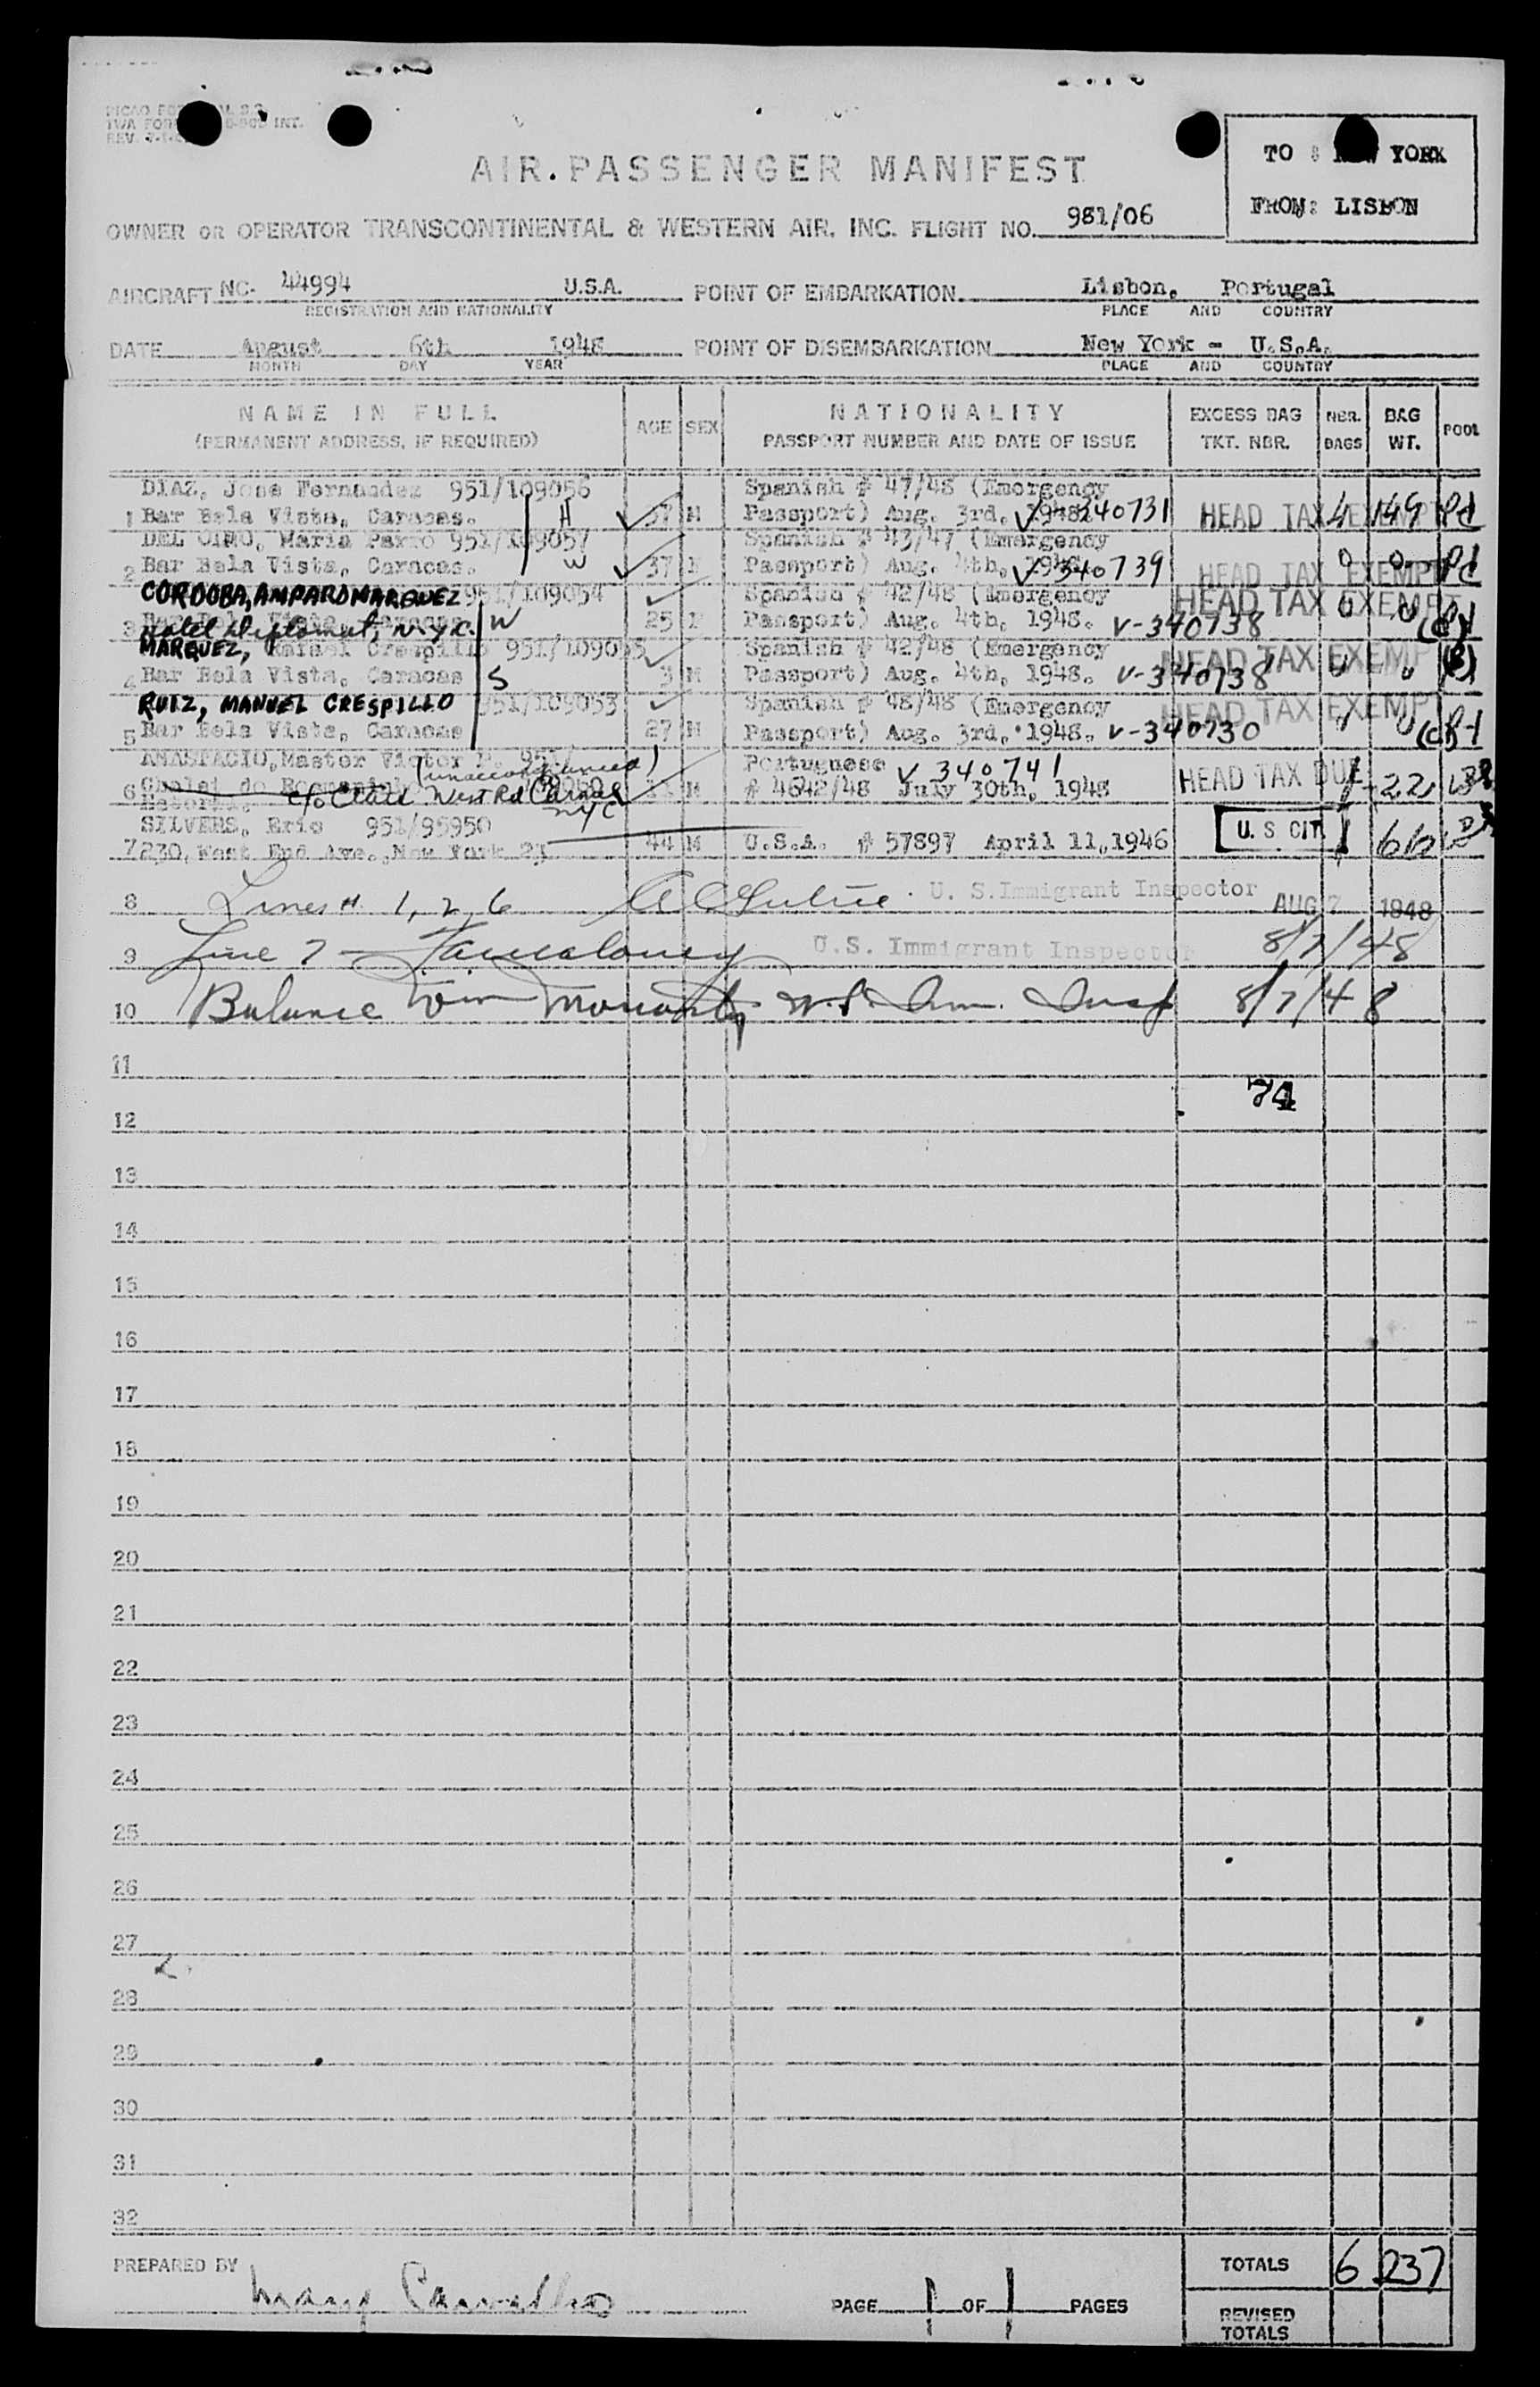 REV.
AIR PASSENGER MANIFEST
TO : NEW YORK
FROM: LISBON
OWNER OR OPERATOR TRANSCONTINENTAL & WESTERN AIR, INC. FLIGHT NO. 981/06
AIRCRAFT NC. 44994 U.S.A. POINT OF EMBARKATION Lisbon, Portugal
REGISTRATION AND NATIONALITY PLACE AND COUNTRY
DATE August 6th 1948 POINT OF DISEMBARKATION New York - U.S.A.
MONTH DAY YEAR PLACE AND COUNTRY
NAME IN FULL AGE SEX NATIONALITY EXCESS BAG NBR. BAG POOL
(PERMANENT ADDRESS, IF REQUIRED) PASSPORT NUMBER AND DATE OF ISSUE TKT. NBR. BAGS WT.
DIAZ, Jose Fernandez 951/109056 Spanish # 47/48 (Emergency
1 Bar Bela Vista, Caracas. H 37 M Passport) Aug. 3rd, 1948. V-340731 HEAD TAX EXEMPT 4 149 Pd
DEL OIMO, Maria 951/109057 Spanish # 43/47 (Emergency
2 Bar Bela Vista, Caracas. W 37 F Passport) Aug. 4th, 1948. V-340739 HEAD TAX EXEMPT 0 0 Pd
CORDOBA, AMPARO MARQUEZ 951/109054 Spanish # 42/48 (Emergency HEAD TAX EXEMPT
3 Hotel Diplomat, N.Y.C. W 25 F Passport) Aug. 4th, 1948. V-340738
MARQUEZ, Rafael Crespillo 951/109055 Spanish # 42/48 (Emergency HEAD TAX EXEMPT
4 Bar Bela Vista, Caracas S 3 M Passport) Aug. 4th, 1948. V-340738
RUIZ, MANUEL CRESPILLO 951/109053 Spanish # 48/48 (Emergency HEAD TAX EXEMPT
5 Bar Bela Vista, Caracas 27 M Passport) Aug. 3rd, 1948. V-340730
ANASTACIO, Master Victor P. 951/ (unaccompanied) Portuguese V 340741
6 c/o West Rd NYC M # 4642/48 July 30th, 1948 HEAD TAX DUE 1 22
SILVERS, Eric 951/95950 U.S. CIT.
7 230, West End Ave., New York 23 44 M U.S.A. # 57897 April 11, 1946 1
8 Lines # 1, 2, 6 U. S. Immigrant Inspector AUG 7 1948
9 Line 7 - U.S. Immigrant Inspector 8/7/48
10 Balance Wm Moriarty U.S. Imm. Insp 8/7/48
11
74
12
13
14
15
16
17
18
19
20
21
22
23
24
25
26
27
28
29
30
31
32
PREPARED BY Mary Carvalho PAGE 1 OF 1 PAGES TOTALS 6 237
REVISED
TOTALS